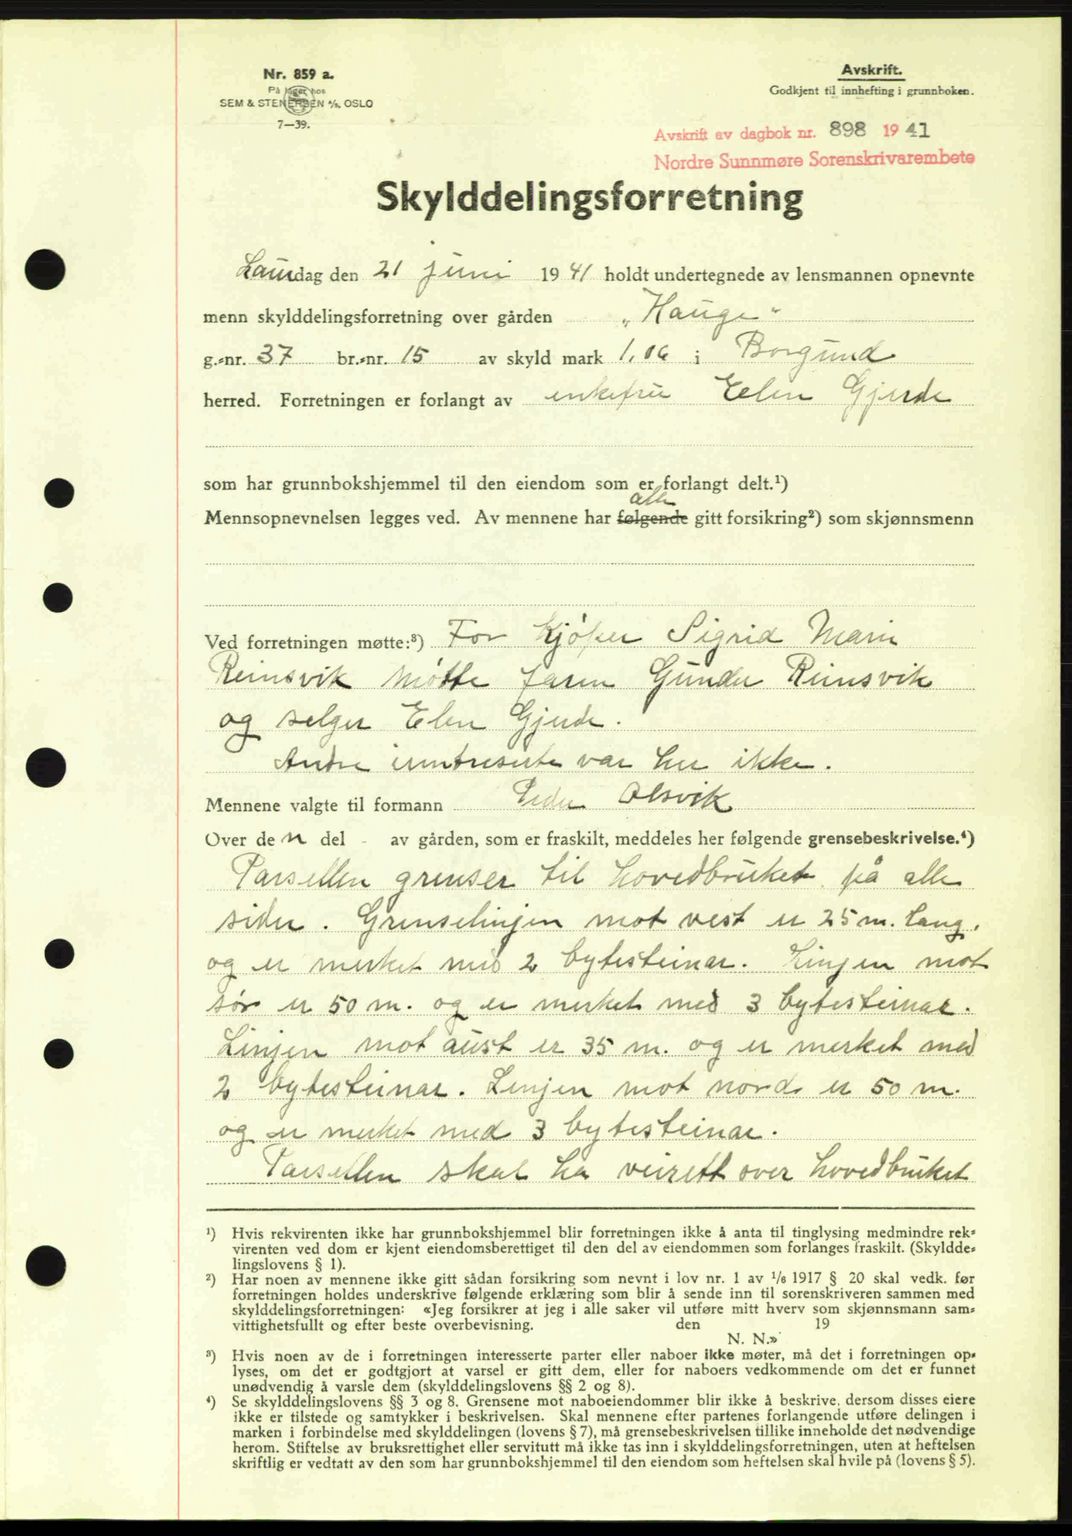 Nr. 859 a.
På lager hos
SEM & STENERSEN A/S, OSLO
7—39.
Avskrift.
Godkjent til innhefting i grunnboken.
Avskrift av dagbok nr. 898 1941
Nordre Sunnmøre Sorenskrivarembete
Skylddelingsforretning
Laurdag den 21 juni 1941 holdt undertegnede av lensmannen opnevnte
menn skylddelingsforretning over gården „Hauge"
g.-nr. 37 br.-nr. 15 av skyld mark 1,06 i Borgund
herred. Forretningen er forlangt av enkefru Elen Gjerde
som har grunnbokshjemmel til den eiendom som er forlangt delt.¹)
alle
Mennsopnevnelsen legges ved. Av mennene har følgende gitt forsikring²) som skjønnsmenn
Ved forretningen møtte:³) For kjøper Sigrid Marie
Reinsvik møtte faren Gunder Reinsvik
og selger Elen Gjerde.
Andre inntreserte var her ikke.
Mennene valgte til formann Peder Alsvik
Over den del av gården, som er fraskilt, meddeles her følgende grensebeskrivelse.⁴)
Parsellen grenser til hovedbruket på alle
sider. Grenselinjen mot vest er 25 m. lang,
og er merket med 2 bytesteinar. Linjen mot
sør er 50 m. og er merket med 3 bytesteinar.
Linjen mot aust er 35 m. og er merket med
2 bytesteinar. Linjen mot nord er 50 m.
og er merket med 3 bytesteinar.
Parsellen skal ha veirett over hovedbruket
¹) Hvis rekvirenten ikke har grunnbokshjemmel blir forretningen ikke å anta til tinglysing medmindre rek-
virenten ved dom er kjent eiendomsberettiget til den del av eiendommen som forlanges fraskilt. (Skyldde-
lingslovens § 1).
²) Har noen av mennene ikke gitt sådan forsikring som nevnt i lov nr. 1 av 1/6 1917 § 20 skal vedk. før
forretningen holdes underskrive følgende erklæring som blir å sende inn til sorenskriveren sammen med
skylddelingsforretningen: «Jeg forsikrer at jeg i alle saker vil utføre mitt hverv som skjønnsmann sam-
vittighetsfullt og efter beste overbevisning. den 19
N. N.»
³) Hvis noen av de i forretningen interesserte parter eller naboer ikke møter, må det i forretningen op-
lyses, om det er godtgjort at varsel er gitt dem, eller for naboers vedkommende om det er funnet
unødvendig å varsle dem (skylddelingslovens §§ 2 og 8).
⁴) Se skylddelingslovens §§ 3 og 8. Grensene mot naboeiendommer blir ikke å beskrive, dersom disses eiere
ikke er tilstede og samtykker i beskrivelsen. Skal mennene efter partenes forlangende utføre delingen i
marken i forbindelse med skylddelingen (lovens § 7), må grensebeskrivelsen tillike inneholde det nødvendige
herom. Stiftelse av bruksrettighet eller servitutt må ikke tas inn i skylddelingsforretningen, uten at heftelsen
skriftlig er vedtatt av den som har grunnbokshjemmel til den eiendom som heftelsen skal hvile på (lovens § 5).